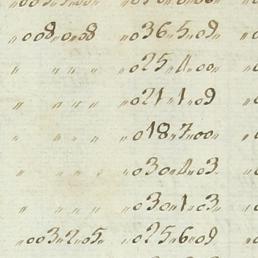 „008„0„08 „036„5„09
„ „ „ „ „025„4„00„
„ „ „ „ „021„1„09
„ „ „ „ „018„7„00„
„ „ „ „ „030„4„03
„ „ „ „ „030„1„03„
„003„2„05 „025„6„09